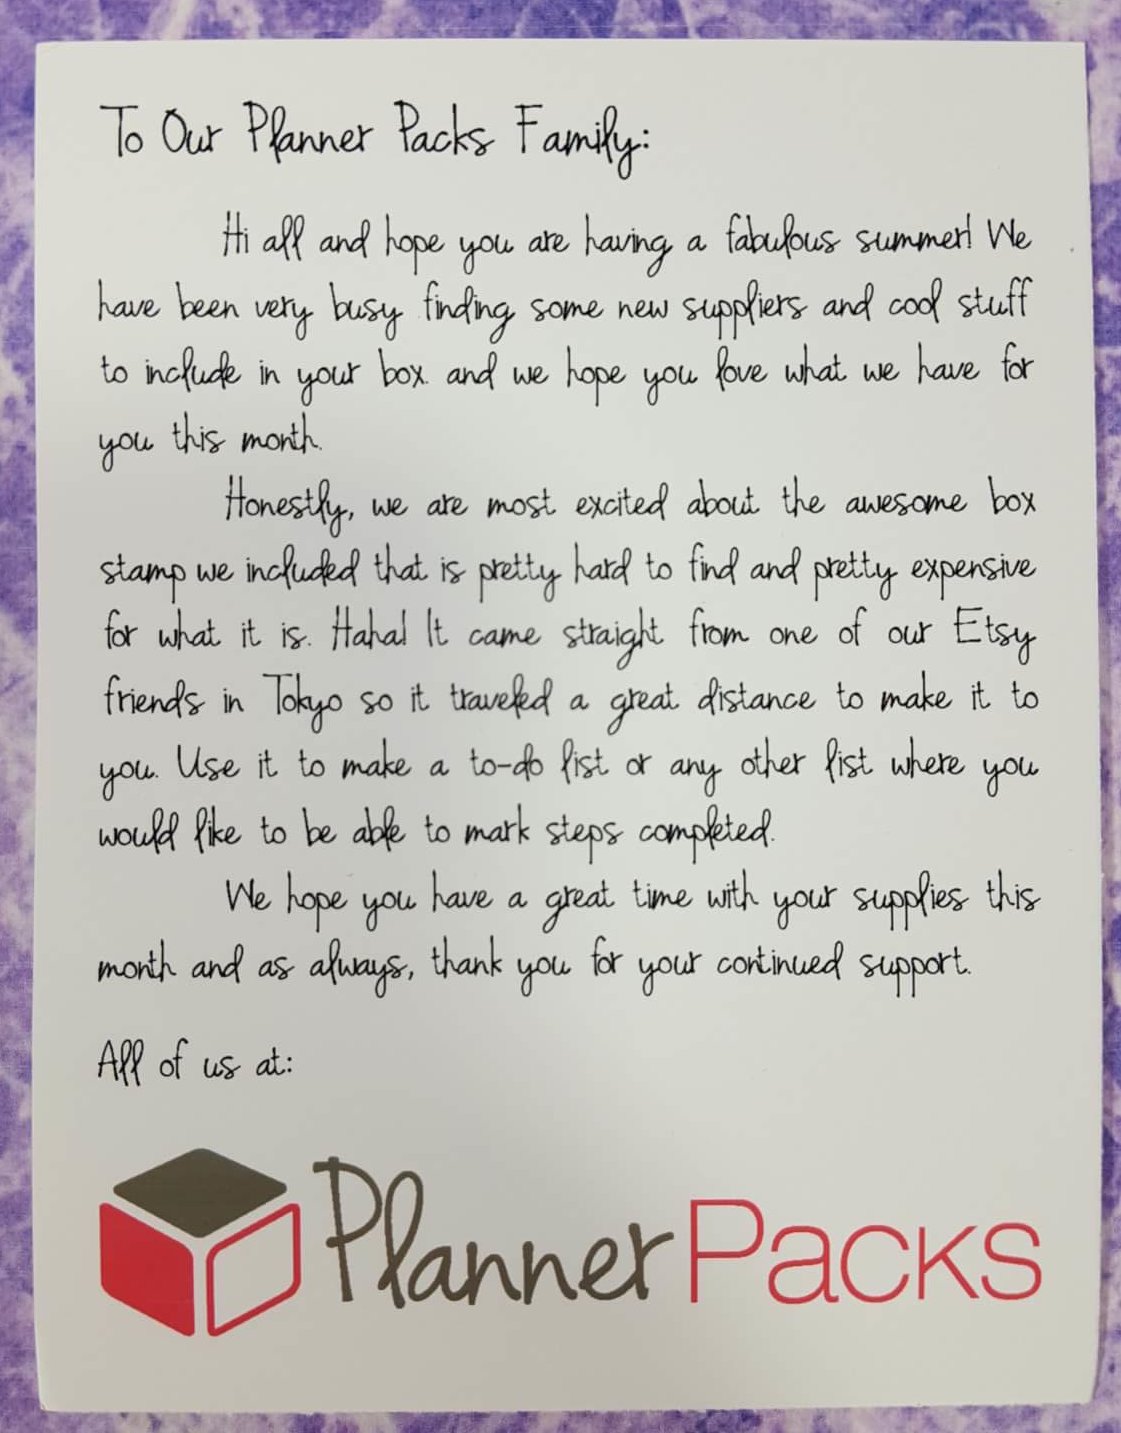 To Our Planner Packs Family:
Hi all and hope you are having a fabulous summer! We
have been very busy finding some new suppliers and cool stuff
to include in your box. and we hope you love what we have for
you this month.
Honestly, we are most excited about the awesome box
stamp we included that is pretty hard to find and pretty expensive
for what it is. Haha! It came straight from one of our Etsy
friends in Tokyo so it traveled a great distance to make it to
you. Use it to make a to-do list or any other list where you
would like to be able to mark steps completed.
We hope you have a great time with your supplies this
month and as always, thank you for your continued support.
All of us at:
Planner Packs